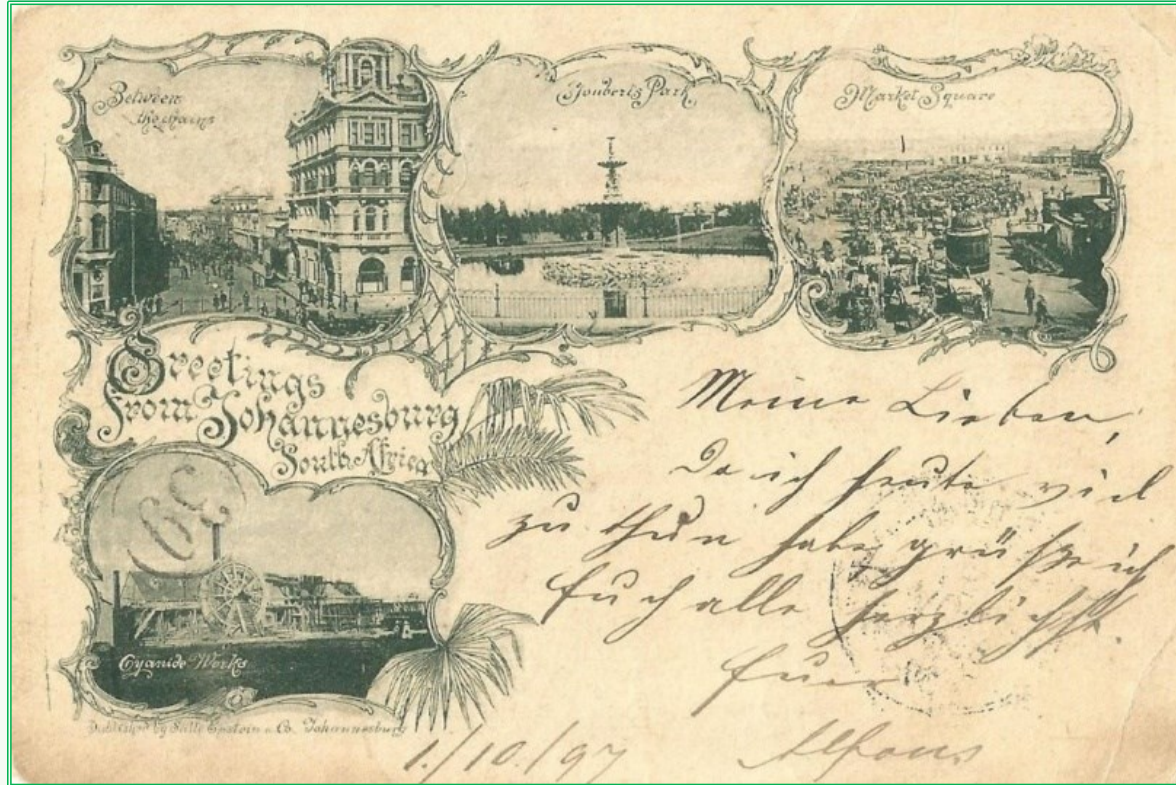 Between
the chains
Jouberts Park
Market Square
Greetings
from Johannesburg
South Africa
Cyanide Works
Published by Sallo Epstein & Co. Johannesburg
Meine Lieben,
Da ich heute viel
zu thun habe, grüße ich
Euch alle herzlichst.
Euer
Alfons
1./10./97